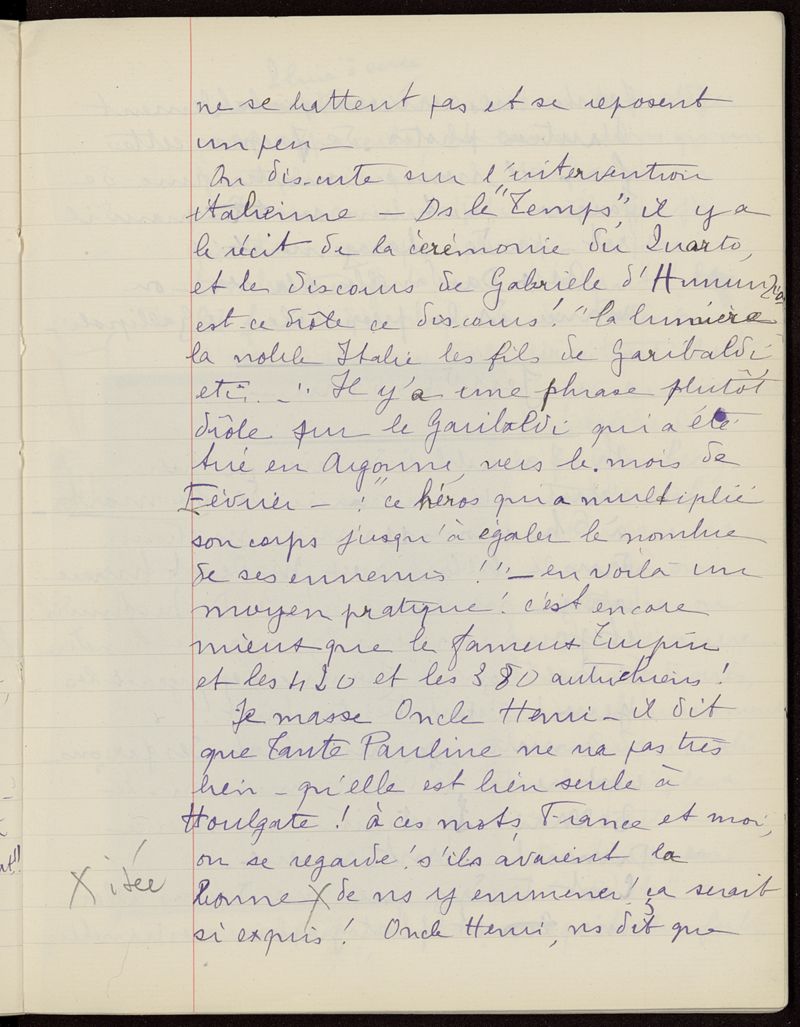 ne se battent pas et se reposent
un peu —
On discute sur l'intervention
italienne — Ds le "Temps", il y a
le récit de la cérémonie du Quarto,
et le discours de Gabriele d'Annunzio,
est-ce drôle ce discours! "la lumière
la noble Italie les fils de Garibaldi,
etc. —" Il y'a une phrase plutôt
drôle sur le Garibaldi qui a été
tué en Argonne, vers le mois de
Février — ! "ce héros qui a multiplié
son corps jusqu'à égaler le nombre
de ses ennemis!" — en voilà un
moyen pratique! c'est encore
mieux que le fameux Turpin
et les 420 et les 380 autrichiens!
Je masse Oncle Henri — il dit
que Tante Pauline ne va pas très
bien — qu'elle est bien seule à
Houlgate! à ces mots, France et moi,
on se regarde! s'ils avaient la
bonne X de ns y emmener! ça serait
X idée
si exquis! Oncle Henri, ns dit que